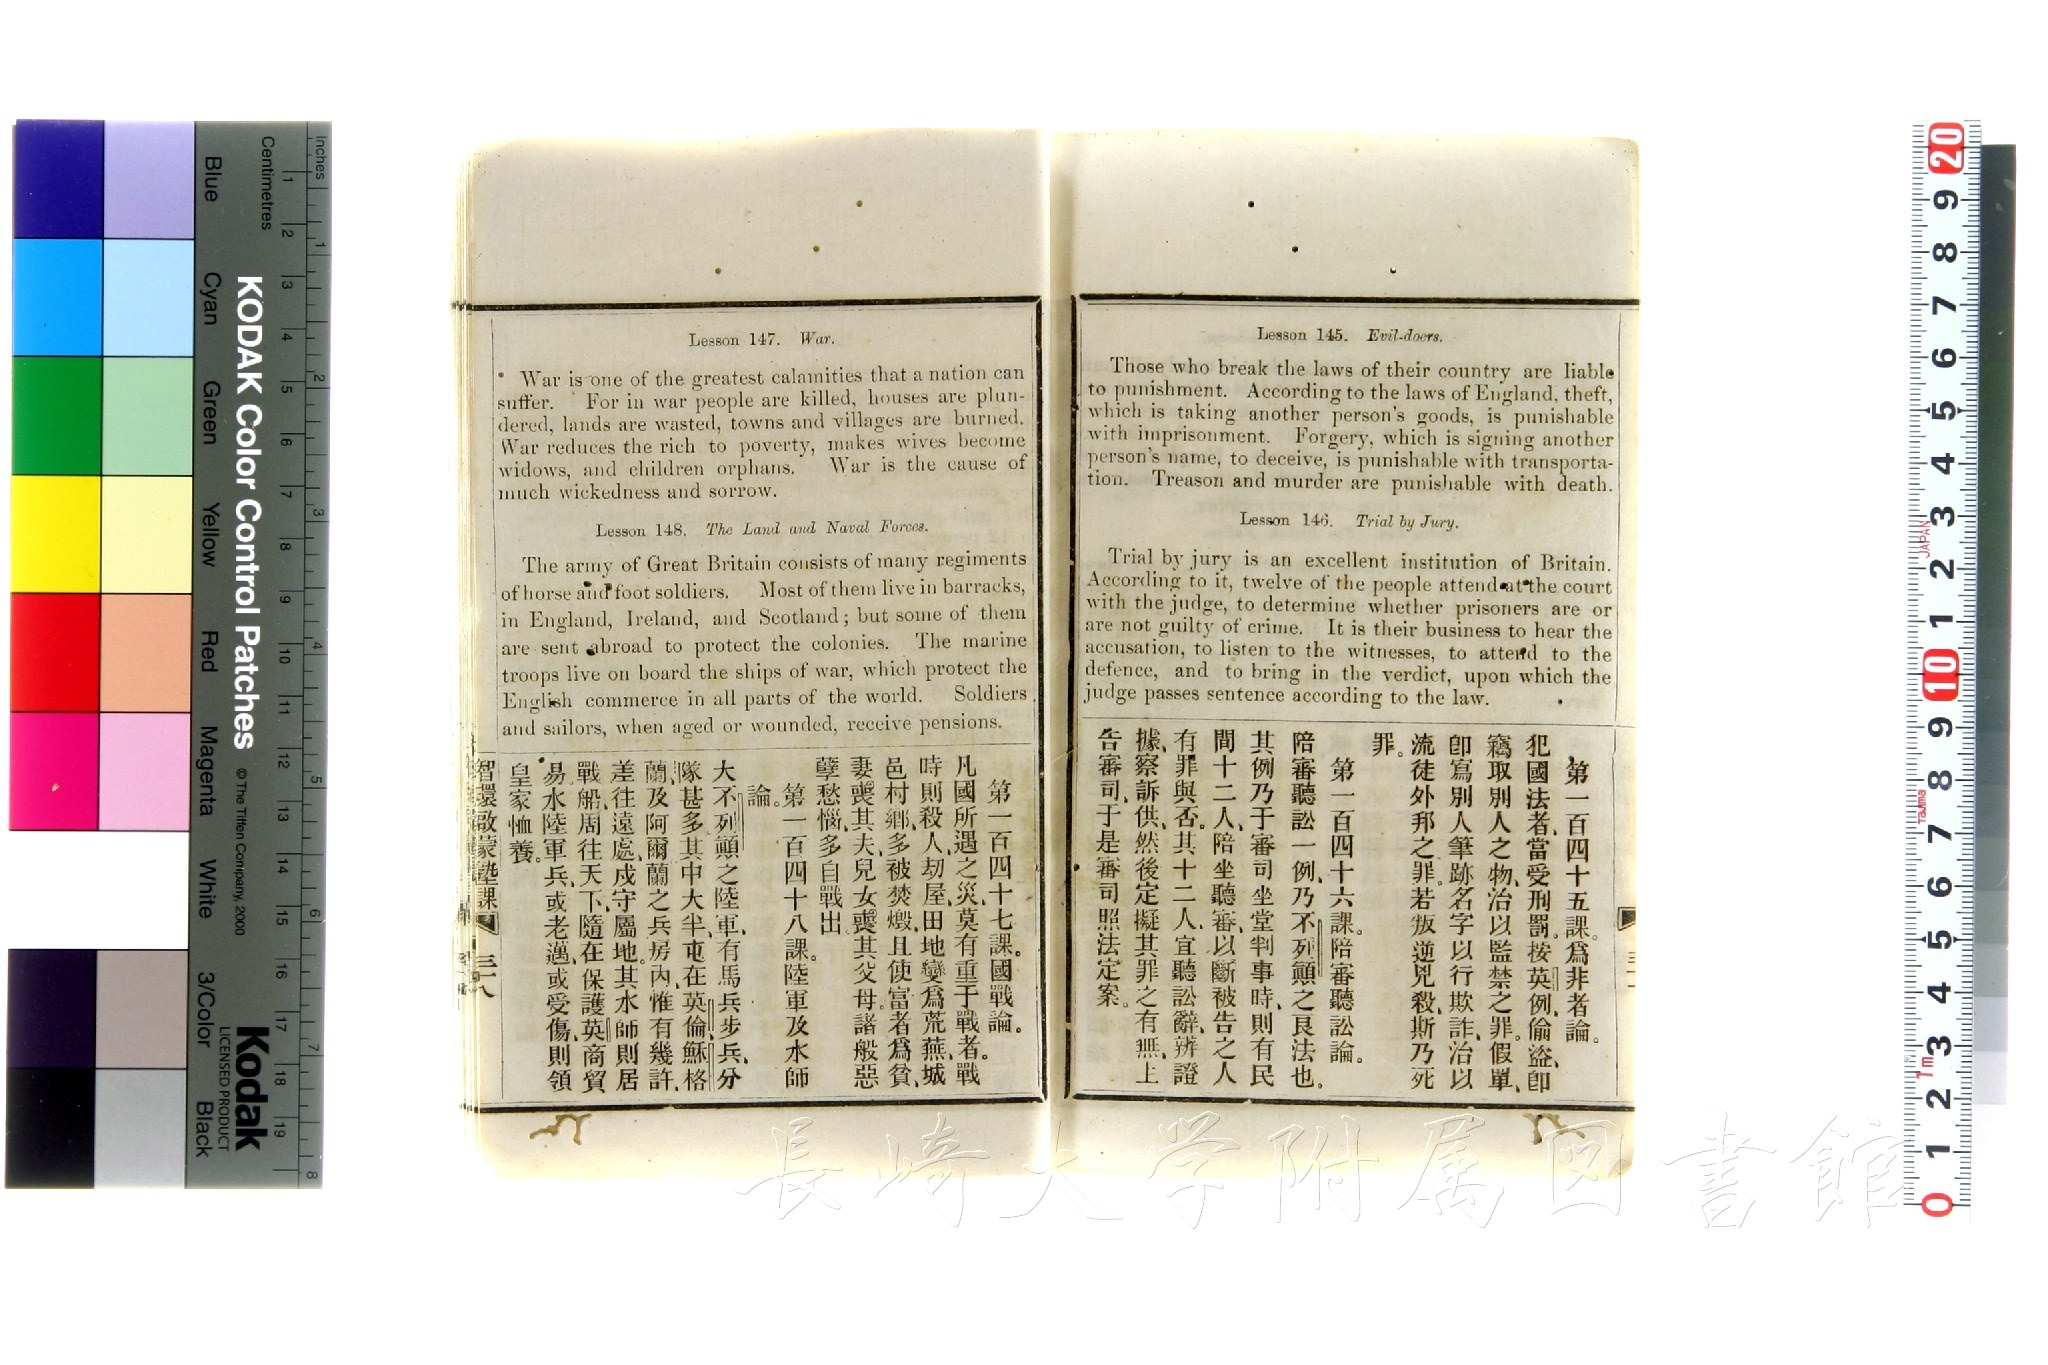 Lesson 145. Evil-doers.
Those who break the laws of their country are liable
to punishment. According to the laws of England, theft,
which is taking another person's goods, is punishable
with imprisonment. Forgery, which is signing another
person's name, to deceive, is punishable with transporta-
tion. Treason and murder are punishable with death.
Lesson 146. Trial by Jury.
Trial by jury is an excellent institution of Britain.
According to it, twelve of the people attend at the court
with the judge, to determine whether prisoners are or
are not guilty of crime. It is their business to hear the
accusation, to listen to the witnesses, to attend to the
defence, and to bring in the verdict, upon which the
judge passes sentence according to the law.
第一百四十五課。爲非者論。
犯國法者、當受刑罰。按英例、偷盜、卽
竊取別人之物、治以監禁之罪。假單、
卽寫別人筆跡名字以行欺詐、治以
流徒外邦之罪。若叛逆兇殺、斯乃死
罪。
第一百四十六課。陪審聽訟論。
陪審聽訟一例、乃不列顚之良法也。
其例乃于審司坐堂判事時、則有民
間十二人、陪坐聽審、以斷被告之人
有罪與否。其十二人、宜聽訟辭、辨證
據、察訴供、然後定擬其罪之有無、上
告審司、于是審司照法定案。
Lesson 147. War.
War is one of the greatest calamities that a nation can
suffer. For in war people are killed, houses are plun-
dered, lands are wasted, towns and villages are burned.
War reduces the rich to poverty, makes wives become
widows, and children orphans. War is the cause of
much wickedness and sorrow.
Lesson 148. The Land and Naval Forces.
The army of Great Britain consists of many regiments
of horse and foot soldiers. Most of them live in barracks,
in England, Ireland, and Scotland; but some of them
are sent abroad to protect the colonies. The marine
troops live on board the ships of war, which protect the
English commerce in all parts of the world. Soldiers
and sailors, when aged or wounded, receive pensions.
第一百四十七課。國戰論。
凡國所遇之災、莫有重于戰者。戰
時則殺人、刧屋、田地變爲荒蕪、城
邑村鄉、多被焚燬、且使富者爲貧、
妻喪其夫、兒女喪其父母。諸般惡
孽愁惱、多自戰出。
第一百四十八課。陸軍及水師
論。
大不列顚之陸軍、有馬兵步兵、分
隊甚多、其中大半、屯在英倫、穌格
蘭、及阿爾蘭之兵房內、惟有幾許、
差往遠處、戍守屬地。其水師則居
戰船、周往天下、隨在保護英商貿
易。水陸軍兵、或老邁、或受傷、則領
皇家恤養。
智環啟蒙塾課
三十八
長崎大学附属図書館
KODAK Color Control Patches
© The Tiffen Company, 2000
Kodak
LICENSED PRODUCT
Inches
Centimetres
Blue
Cyan
Green
Yellow
Red
Magenta
White
3/Color
Black
1 2 3 4 5 6 7 8 9 10 11 12 13 14 15 16 17 18 19
1 2 3 4 5 6 7 8
20 9 8 7 6 5 4 3 2 1 10 9 8 7 6 5 4 3 2 1 0
JAPAN
TAJIMA
1m